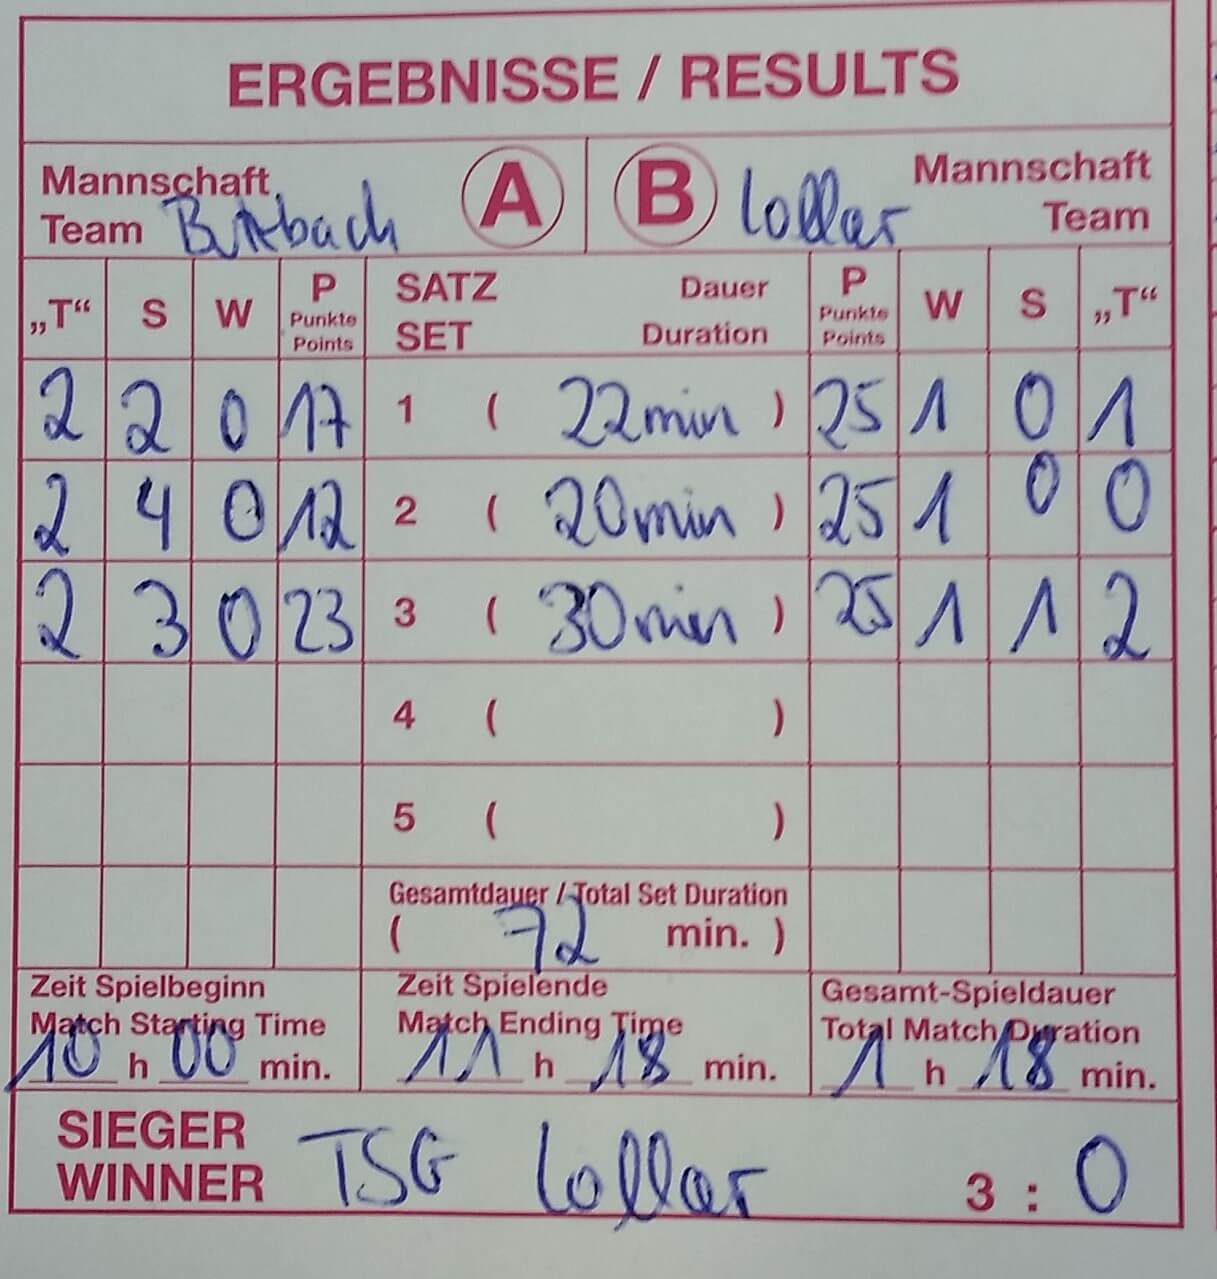 ERGEBNISSE / RESULTS
Mannschaft Team Butzbach A B Lollar Mannschaft Team
„T“ S W P Punkte Points SATZ SET Dauer Duration P Punkte Points W S „T“
2 2 0 17 1 ( 22min ) 25 1 0 1
2 4 0 12 2 ( 20min ) 25 1 0 0
2 3 0 23 3 ( 30min ) 25 1 1 2
4 ( )
5 ( )
Gesamtdauer / Total Set Duration
( 72 min. )
Zeit Spielbeginn
Match Starting Time
10 h 00 min.
Zeit Spielende
Match Ending Time
11 h 18 min.
Gesamt-Spieldauer
Total Match Duration
1 h 18 min.
SIEGER
WINNER TSG Lollar 3 : 0